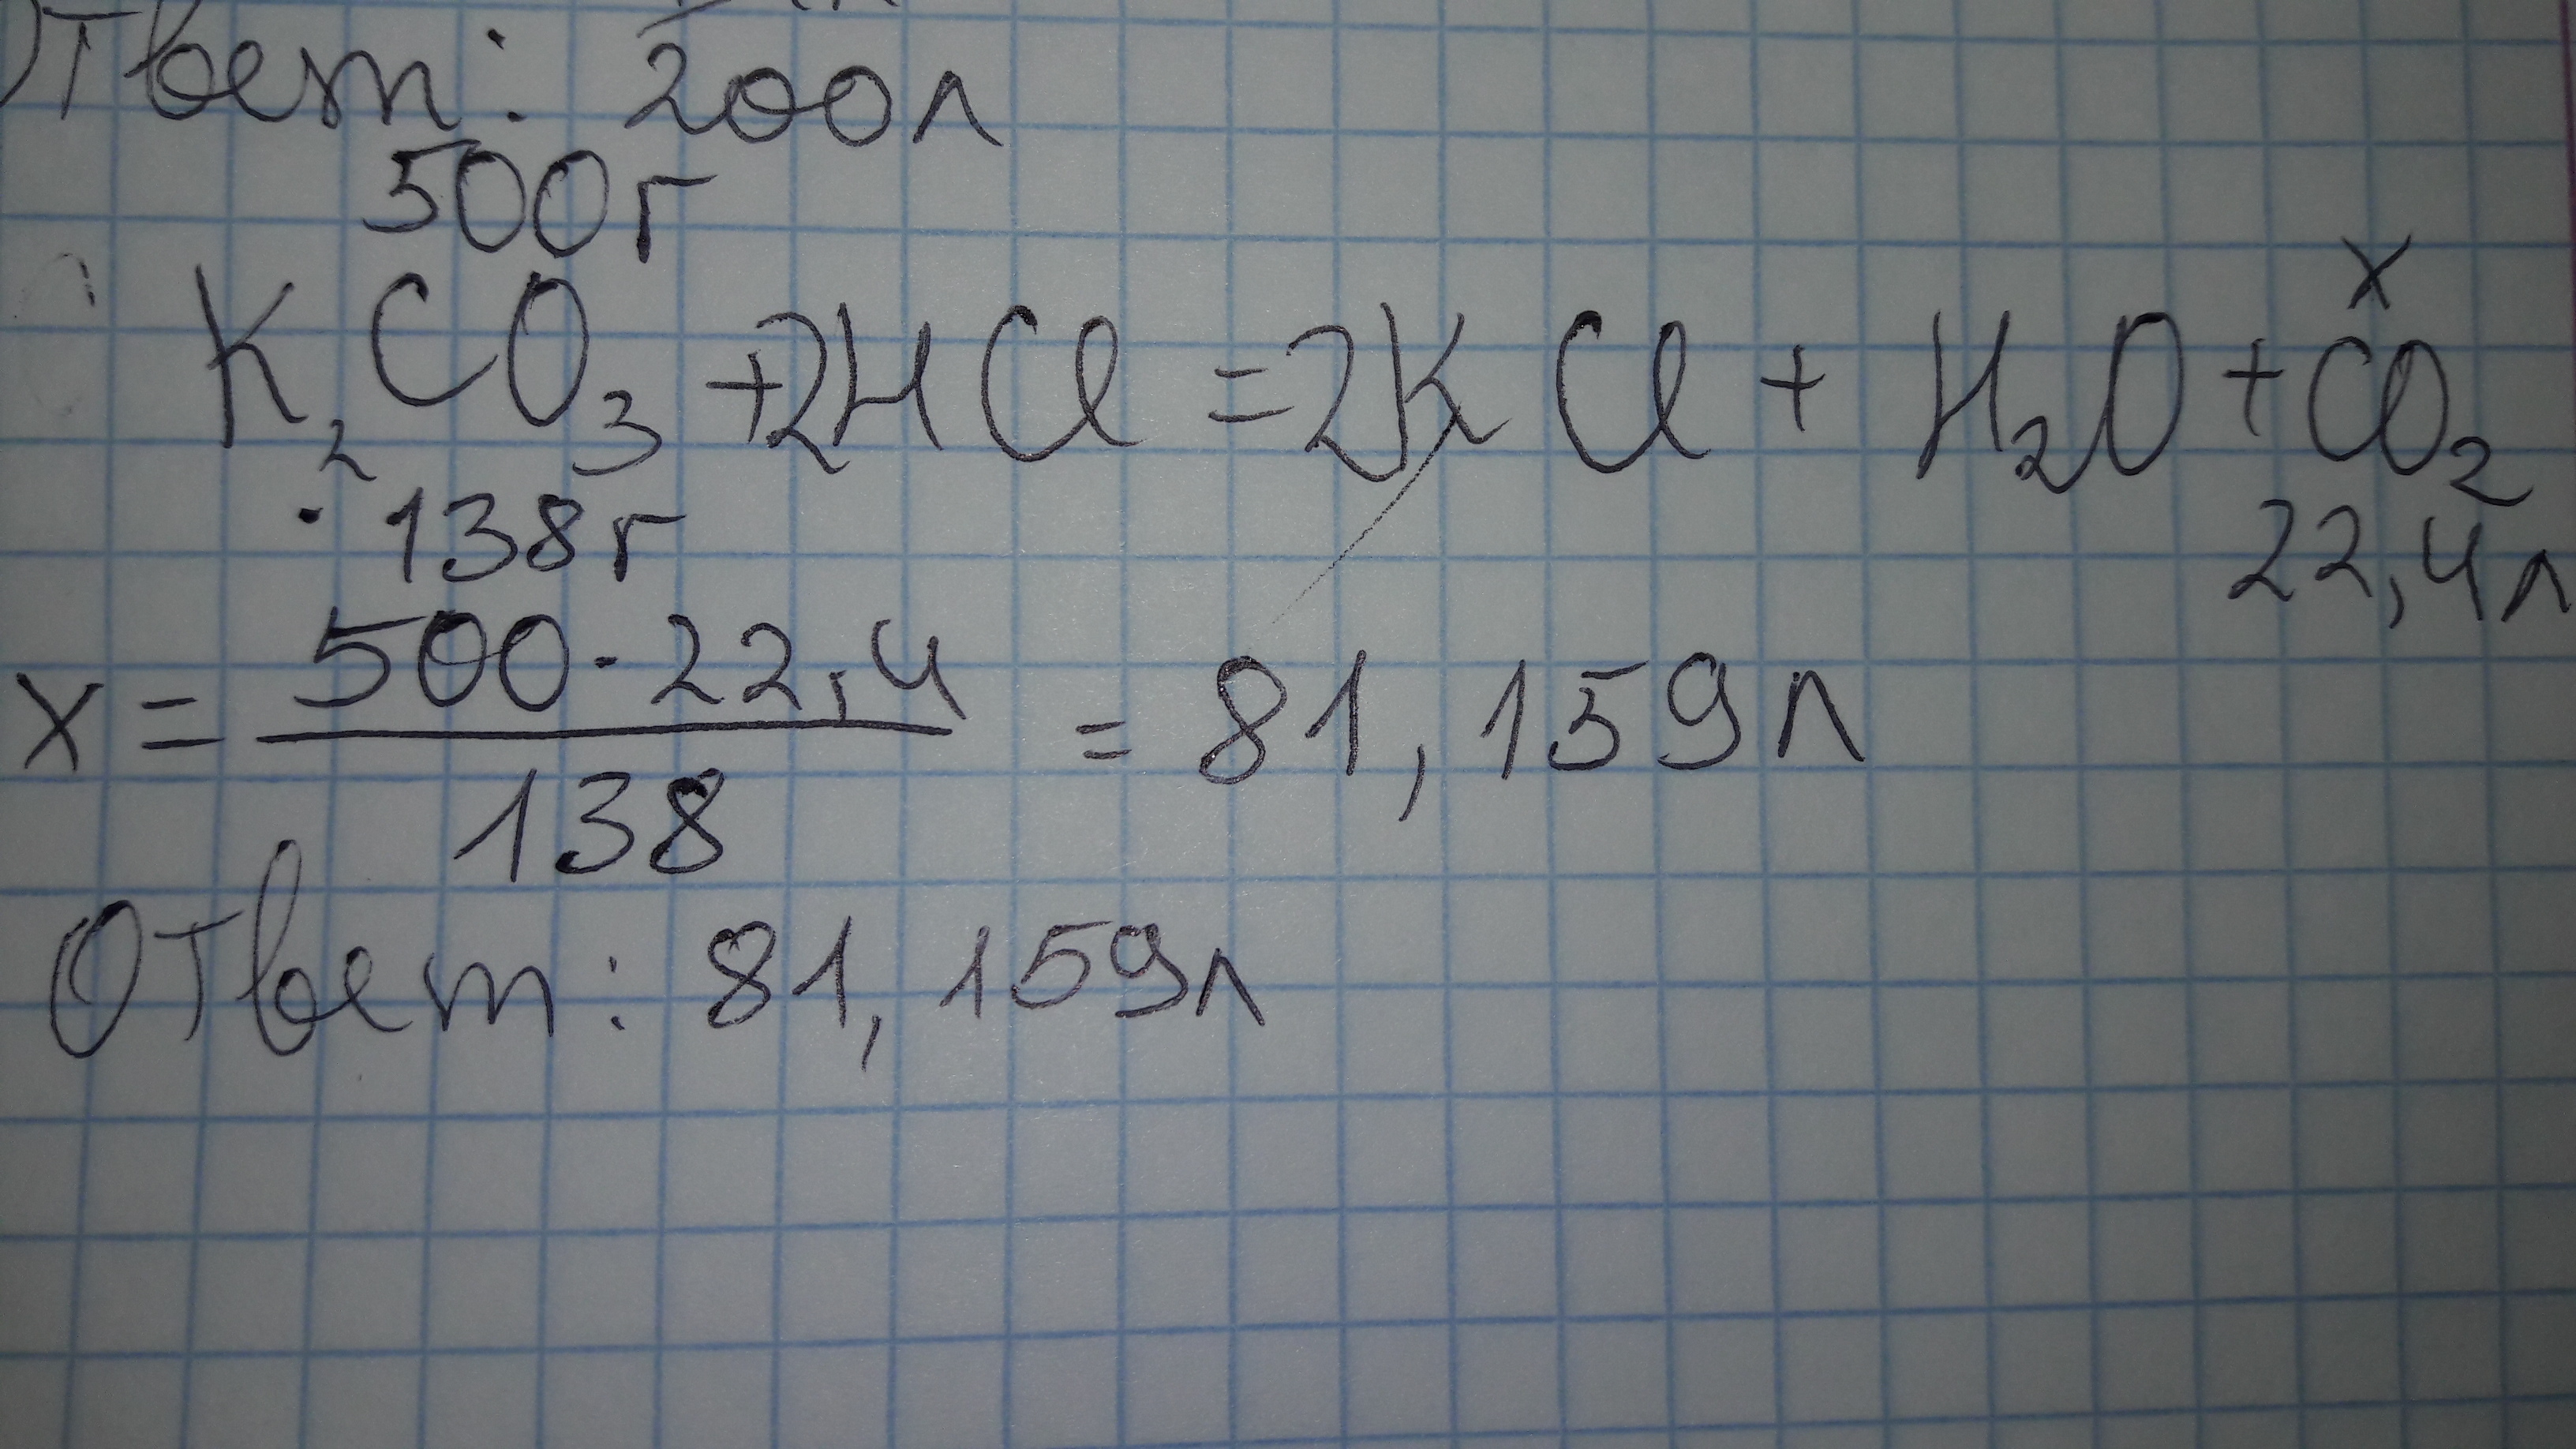 Ответ: 200л
500г
x
K₂CO₃ + 2HCl = 2KCl + H₂O + CO₂
138г 22,4л
x = 500·22,4 / 138 = 81,159л
Ответ: 81,159л